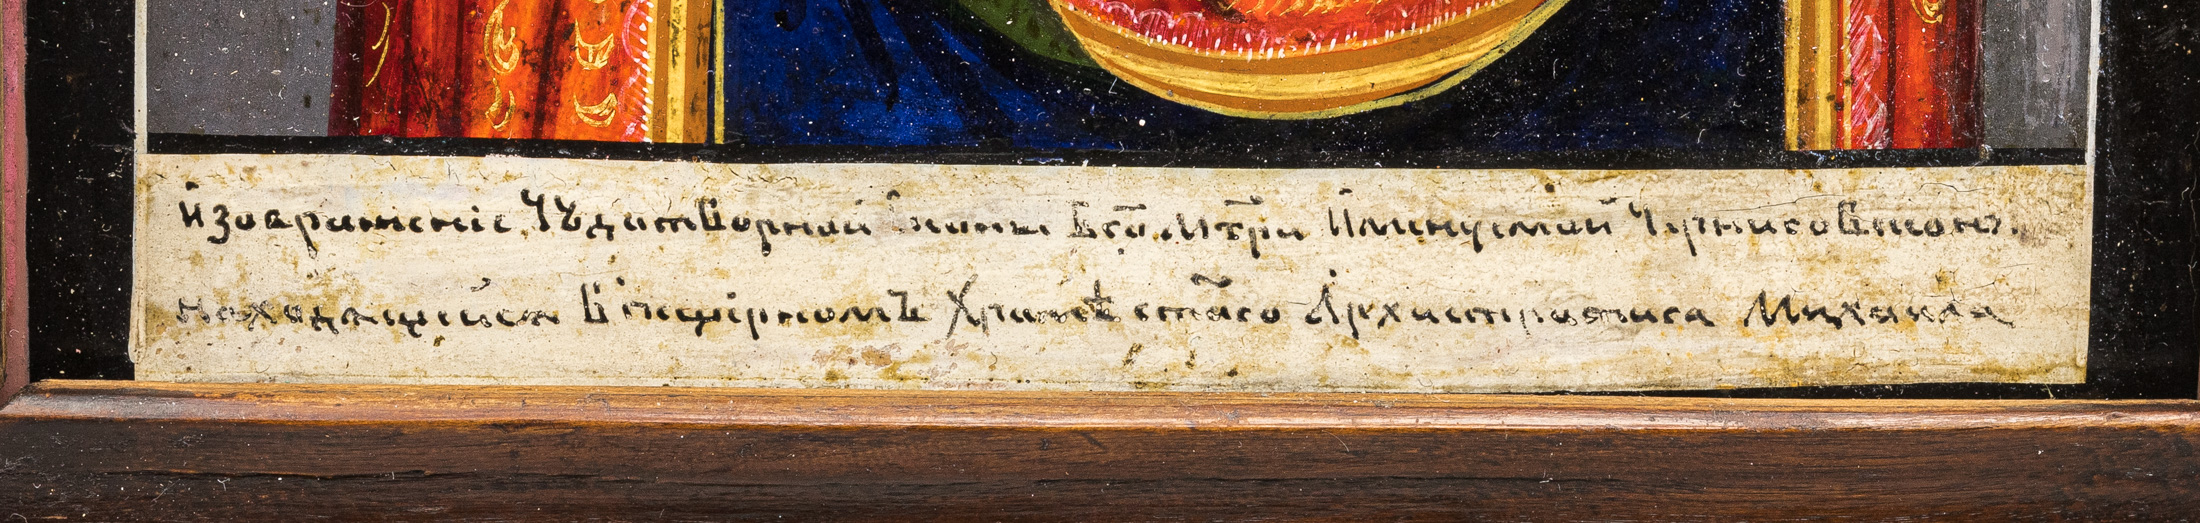 Изображеніе Чѫдатворной Иконы Бго̃ Мт̃ри Именуемой Черниговскою.
находящійся В пещірномъ Храмѣ ста̃го Архистратига Михаила